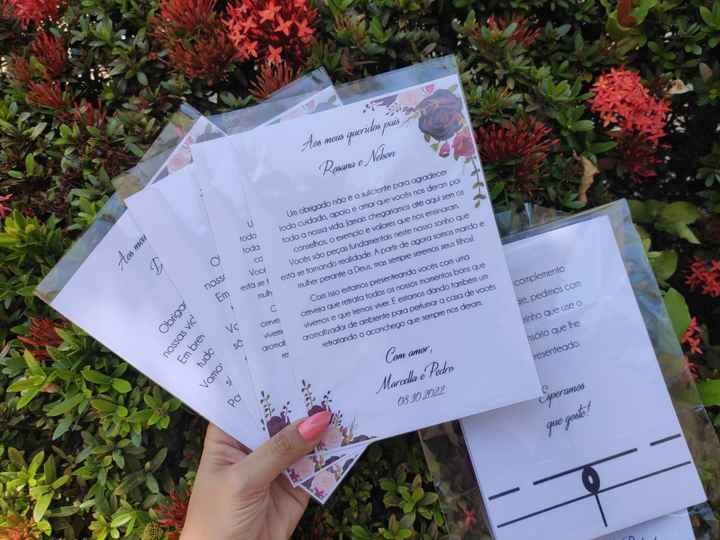 Aos meus queridos pais
Rosana e Nelson
Um obrigado não é o suficiante para agradecer
todo cuidado, apoio e amor que vocês nos deram por
toda a nossa vida. Jamais chegaríamos até aqui sem os
conselhos, o exemplo e valores que nos ensinaram.
Vocês são peças fundamentais neste nosso sonho que
está se tornando realidade. A partir de agora somos marido e
mulher perante a Deus, mas sempre seremos seus filhos!
Com isso estamos presenteando vocês com uma
cerveja que retrata todos os nossos momentos bons que
vivemos e que iremos viver. E estamos dando também um
aromatizador de ambiente para perfumar a casa de vocês
retratando o aconchego que sempre nos deram.
Com amor,
Marcella e Pedro
08.10.2022
Aos meu
Obrigac
nossas vic
Em bren
tudo
Vamo
complemento
pedimos com
rinho que use o
sório que lhe
presenteado.
Esperamos
que goste!